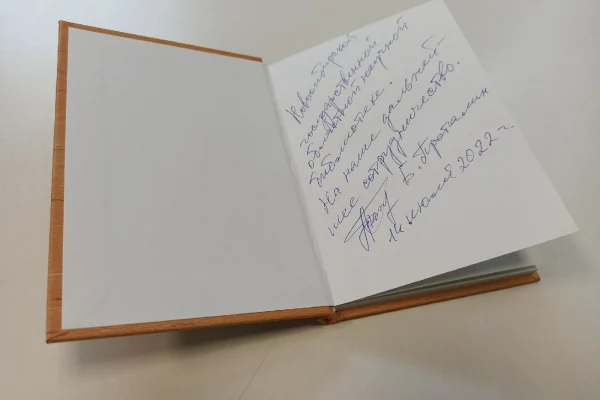 Новосибирской
государственной
областной научной
библиотеке.
На наше дальней
шее сотрудничество.
Б. Проталин
14 июля 2022 г.